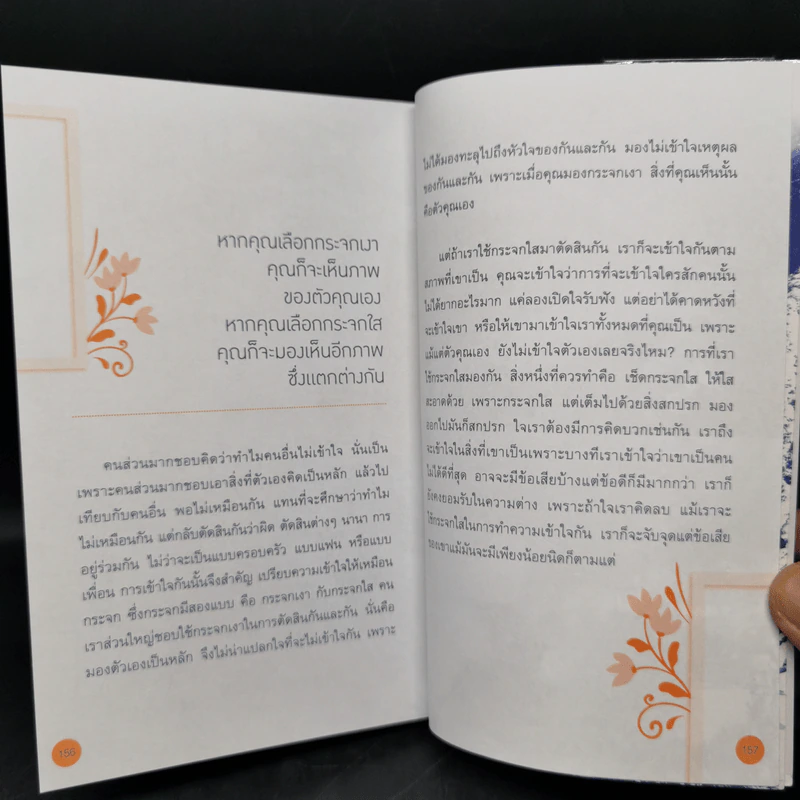 หากคุณเลือกกระจกเงา
คุณก็จะเห็นภาพ
ของตัวคุณเอง
หากคุณเลือกกระจกใส
คุณก็จะมองเห็นอีกภาพ
ซึ่งแตกต่างกัน
คนส่วนมากชอบคิดว่าทำไมคนอื่นไม่เข้าใจ นั่นเป็น
เพราะคนส่วนมากชอบเอาสิ่งที่ตัวเองคิดเป็นหลัก แล้วไป
เทียบกับคนอื่น พอไม่เหมือนกัน แทนที่จะศึกษาว่าทำไม
ไม่เหมือนกัน แต่กลับตัดสินกันว่าผิด ตัดสินต่างๆ นานา การ
อยู่ร่วมกัน ไม่ว่าจะเป็นแบบครอบครัว แบบแฟน หรือแบบ
เพื่อน การเข้าใจกันนั้นจึงสำคัญ เปรียบความเข้าใจให้เหมือน
กระจก ซึ่งกระจกมีสองแบบ คือ กระจกเงา กับกระจกใส คน
เราส่วนใหญ่ชอบใช้กระจกเงาในการตัดสินกันและกัน นั่นคือ
มองตัวเองเป็นหลัก จึงไม่น่าแปลกใจที่จะไม่เข้าใจกัน เพราะ
156
ไม่ได้มองทะลุไปถึงหัวใจของกันและกัน มองไม่เข้าใจเหตุผล
ของกันและกัน เพราะเมื่อคุณมองกระจกเงา สิ่งที่คุณเห็นนั้น
คือตัวคุณเอง
แต่ถ้าเราใช้กระจกใสมาตัดสินกัน เราก็จะเข้าใจกันตาม
สภาพที่เขาเป็น คุณจะเข้าใจว่าการที่จะเข้าใจใครสักคนนั้น
ไม่ได้ยากอะไรมาก แค่ลองเปิดใจรับฟัง แต่อย่าได้คาดหวังที่
จะเข้าใจเขา หรือให้เขามาเข้าใจเราทั้งหมดที่คุณเป็น เพราะ
แม้แต่ตัวคุณเอง ยังไม่เข้าใจตัวเองเลยจริงไหม? การที่เรา
ใช้กระจกใสมองกัน สิ่งหนึ่งที่ควรทำคือ เช็ดกระจกใส ให้ใส
สะอาดด้วย เพราะกระจกใส แต่เต็มไปด้วยสิ่งสกปรก มอง
ออกไปมันก็สกปรก ใจเราต้องมีการคิดบวกเช่นกัน เราถึง
จะเข้าใจในสิ่งที่เขาเป็นเพราะบางทีเราเข้าใจว่าเขาเป็นคน
ไม่ได้ดีที่สุด อาจจะมีข้อเสียบ้างแต่ข้อดีก็มีมากกว่า เราก็
ยังคงยอมรับในความต่าง เพราะถ้าใจเราคิดลบ แม้เราจะ
ใช้กระจกใสในการทำความเข้าใจกัน เราก็จะจับจุดแต่ข้อเสีย
ของเขาแม้มันจะมีเพียงน้อยนิดก็ตามแต่
157